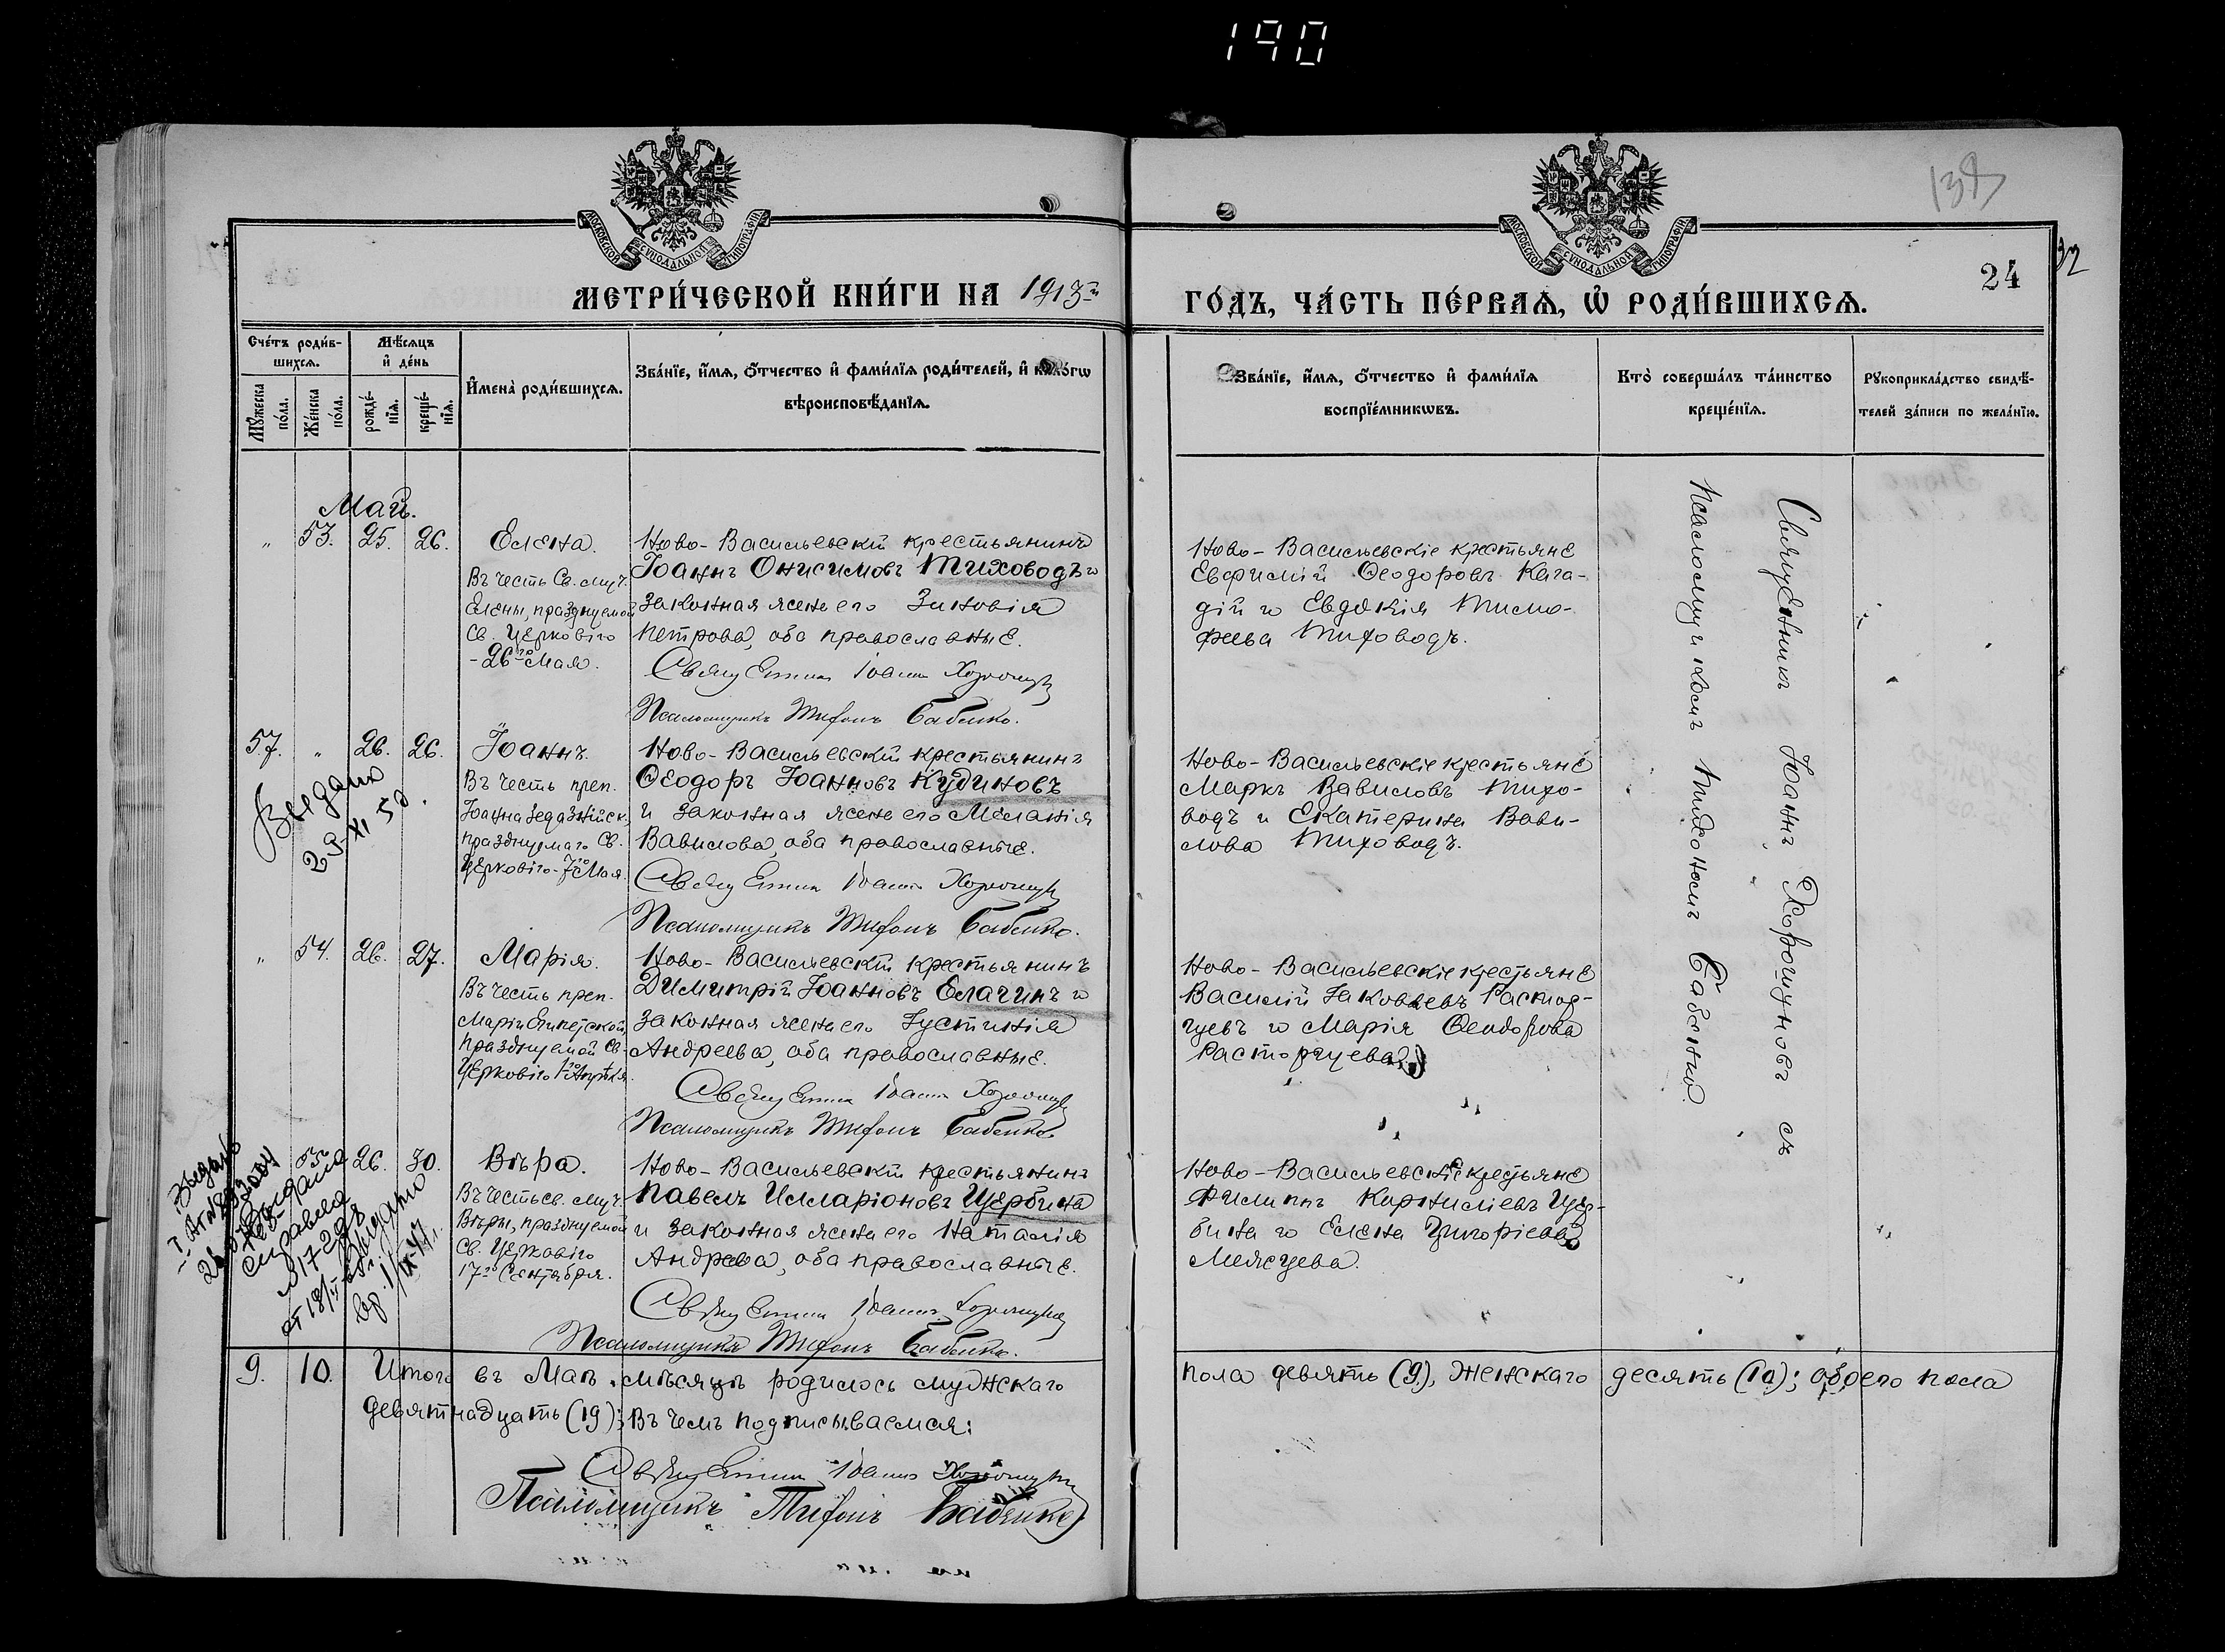 190
139
32
МОСКОВСКОЙ СѴНОДАЛЬНОЙ ТИПОГРАФІИ.
МОСКОВСКОЙ СѴНОДАЛЬНОЙ ТИПОГРАФІИ.
24
МЕТРИ́ЧЕСКОЙ КНИ́ГИ НА 1913й
ГО́ДЪ, ЧА́СТЬ ПЕ́РВАѦ, Ѡ҆ РОДИ́ВШИХСѦ.
Сче́тъ роди́в-
шихсѧ.
Мꙋ́жеска по́ла.
Же́нска по́ла.
Мѣ́сѧцъ и҆ де́нь
рожде́-
нїѧ.
креще́-
нїѧ.
И҆мена̀ роди́вшихсѧ.
Зва́нїе, и҆́мѧ, ѻ҆́тчество и҆ фами́лїѧ роди́телей, и҆ како́гѡ
вѣроисповѣ́данїѧ.
Зва́нїе, и҆́мѧ, ѻ҆́тчество и҆ фами́лїѧ
воспрїе́мникѡвъ.
Кто̀ соверша́лъ та́инство
креще́нїѧ.
Рꙋкоприкла́дство свидѣ́-
телей за́писи по жела́нїю.
Май.
„ 53. 25. 26.
Елена.
Въ честь Св. муч.
Елены, празднуемой
Св. Церковію
- 26го Мая.
Ново-Васильевскій крестьянинъ
Іоаннъ Онисимовъ Тиховодъ и
законная жена его Зиновія
Петрова, оба православные.
Священникъ Іоаннъ Хорошуновъ
Псаломщикъ Тихонъ Бабенко.
Ново-Васильевскіе крестьяне
Евфимій Ѳеодоровъ Кага-
дій и Евдокія Тимо-
феева Тиховодъ.
Священникъ Іоаннъ Хорошуновъ съ
псаломщикомъ Тихономъ Бабенко.
57. „ 26. 26.
Выдано
29-XI 50.
Іоаннъ.
Въ честь преп.
Іоанна Зедазнійск.
празднуемаго Св.
Церковію - 7го Мая.
Ново-Васильевскій крестьянинъ
Ѳеодоръ Іоанновъ Кудиновъ
и законная жена его Меланія
Вавилова, оба православные.
Священникъ Іоаннъ Хорошуновъ
Псаломщикъ Тихонъ Бабенко.
Ново-Васильевскіе крестьяне
Маркъ Вавиловъ Тихо-
водъ и Екатерина Вави-
лова Тиховодъ.
„ 54. 26. 27.
Марія.
Въ честь преп.
Маріи Египетской,
празднуемой Св.
Церковію 1го Апрѣля.
Ново-Васильевскій крестьянинъ
Димитрій Іоанновъ Елагинъ и
законная жена его Іустинія
Андреева, оба православные.
Священникъ Іоаннъ Хорошуновъ
Псаломщикъ Тихонъ Бабенко
Ново-Васильевскіе крестьяне
Василій Іаковлевъ Растор-
гуевъ и Марія Ѳеодорова
Расторгуева.
55. 26. 30.
Выдано
справка
№ 1729
Выдано
Вѣра.
Въ честь св. муч.
Вѣры, празднуемой
Св. Церковію
17го Сентября.
Ново-Васильевскій крестьянинъ
Павелъ Илларіоновъ Щербина
и законная жена его Наталія
Андреева, оба православные.
Священникъ Іоаннъ Хорошуновъ
Псаломщикъ Тихонъ Бабенко.
Ново-Васильевскіе крестьяне
Филиппъ Корниліевъ Щер-
бина и Елена Григоріева
Межецева.
9. 10. Итого въ Маѣ мѣсяцѣ родилось мужскаго
пола девять (9), женскаго десять (10); обоего пола
девятнадцать (19); Въ чемъ подписываемся:
Священникъ Іоаннъ Хорошуновъ
Псаломщикъ Тихонъ Бабенко